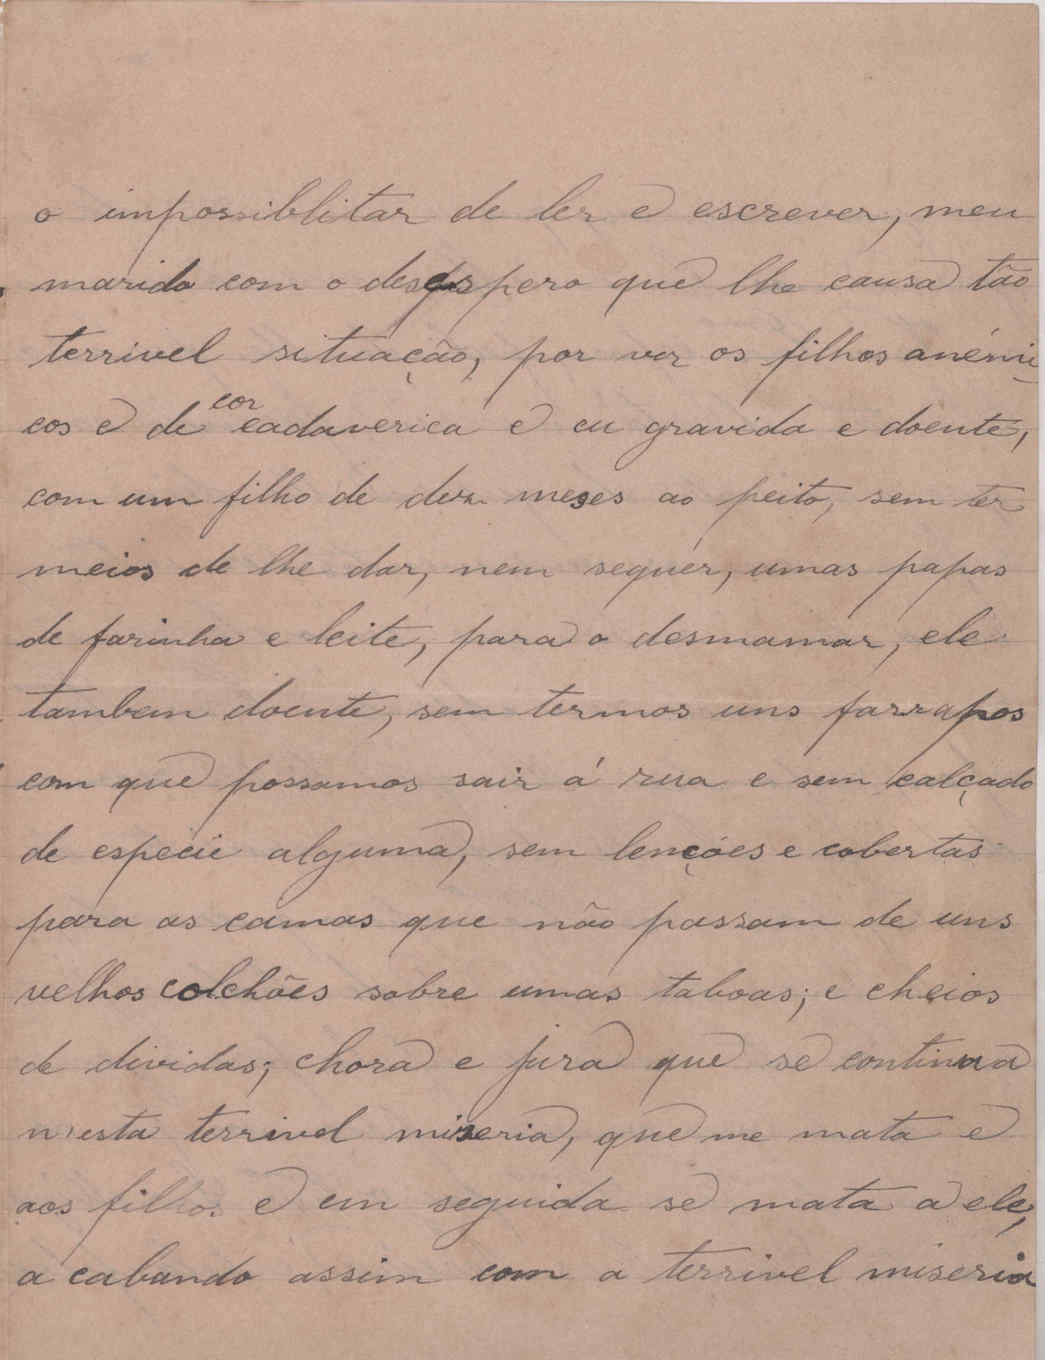 o impossiblitar de ler e escrever, meu
marido com o desespero que lhe causa tão
terrivel situação, por ver os filhos anémi
cos e de cor cadaverica e eu gravida e doente,
com um filho de dez meses ao peito, sem ter
meios de lhe dar, nem sequer, umas papas
de farinha e leite, para o desmamar, ele
tambem doente, sem termos uns farrapos
com que possamos sair á rua e sem calçado
de especie alguma, sem lenções e cobertas
para as camas que não passam de uns
velhos colchões sobre umas taboas; e cheios
de dividas; chora e jura que se continua
n'esta terrivel miseria, que me mata e
aos filhos e em seguida se mata a ele,
a cabando assim com a terrivel miseria